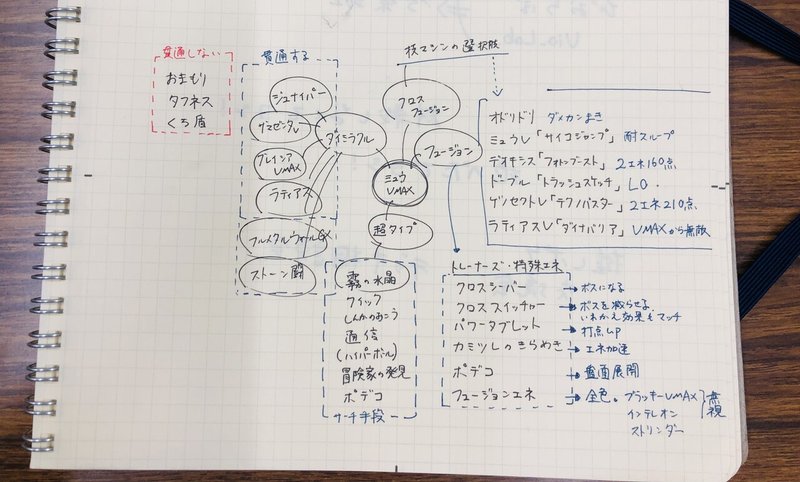 貫通しない
おまもり
タフネス
くろ盾
貫通する
ジュナイパー
ザマゼンタV
ブレインア
VMAX
ラティアス
フルメタルウォールGX
ストーン闘
ダイミラクル
ミュウ
VMAX
クロス
フュージョン
フュージョン
超タイプ
技マシンの選択肢
オドリドリ ダメカンまき
ミュウV「サイコジャンプ」耐久ループ
デオキシス「フォトンブースト」2エネ160点
ドーブル「トラッシュスケッチ」LO
ゲノセクトV「テクノバスター」2エネ210点
ラティアスV「ダイナバリア」VMAXから無敵
霧の水晶
クイック
しんかのおこう
通信
(ハイパーボール)
冒険家の発見
ポデコ
サーチ手段
トレーナーズ・特殊エネ
クロスシーバー → ボスになる
クロススイッチャー → ボスを減らせる
いれかえ効果もマッチ
パワータブレット → 打点UP
カミツレのきらめき → エネ加速
ポデコ → 盤面展開
フュージョンエネ → 全色。ブラッキーVMAX
インテレオン
ストリンダー
無視